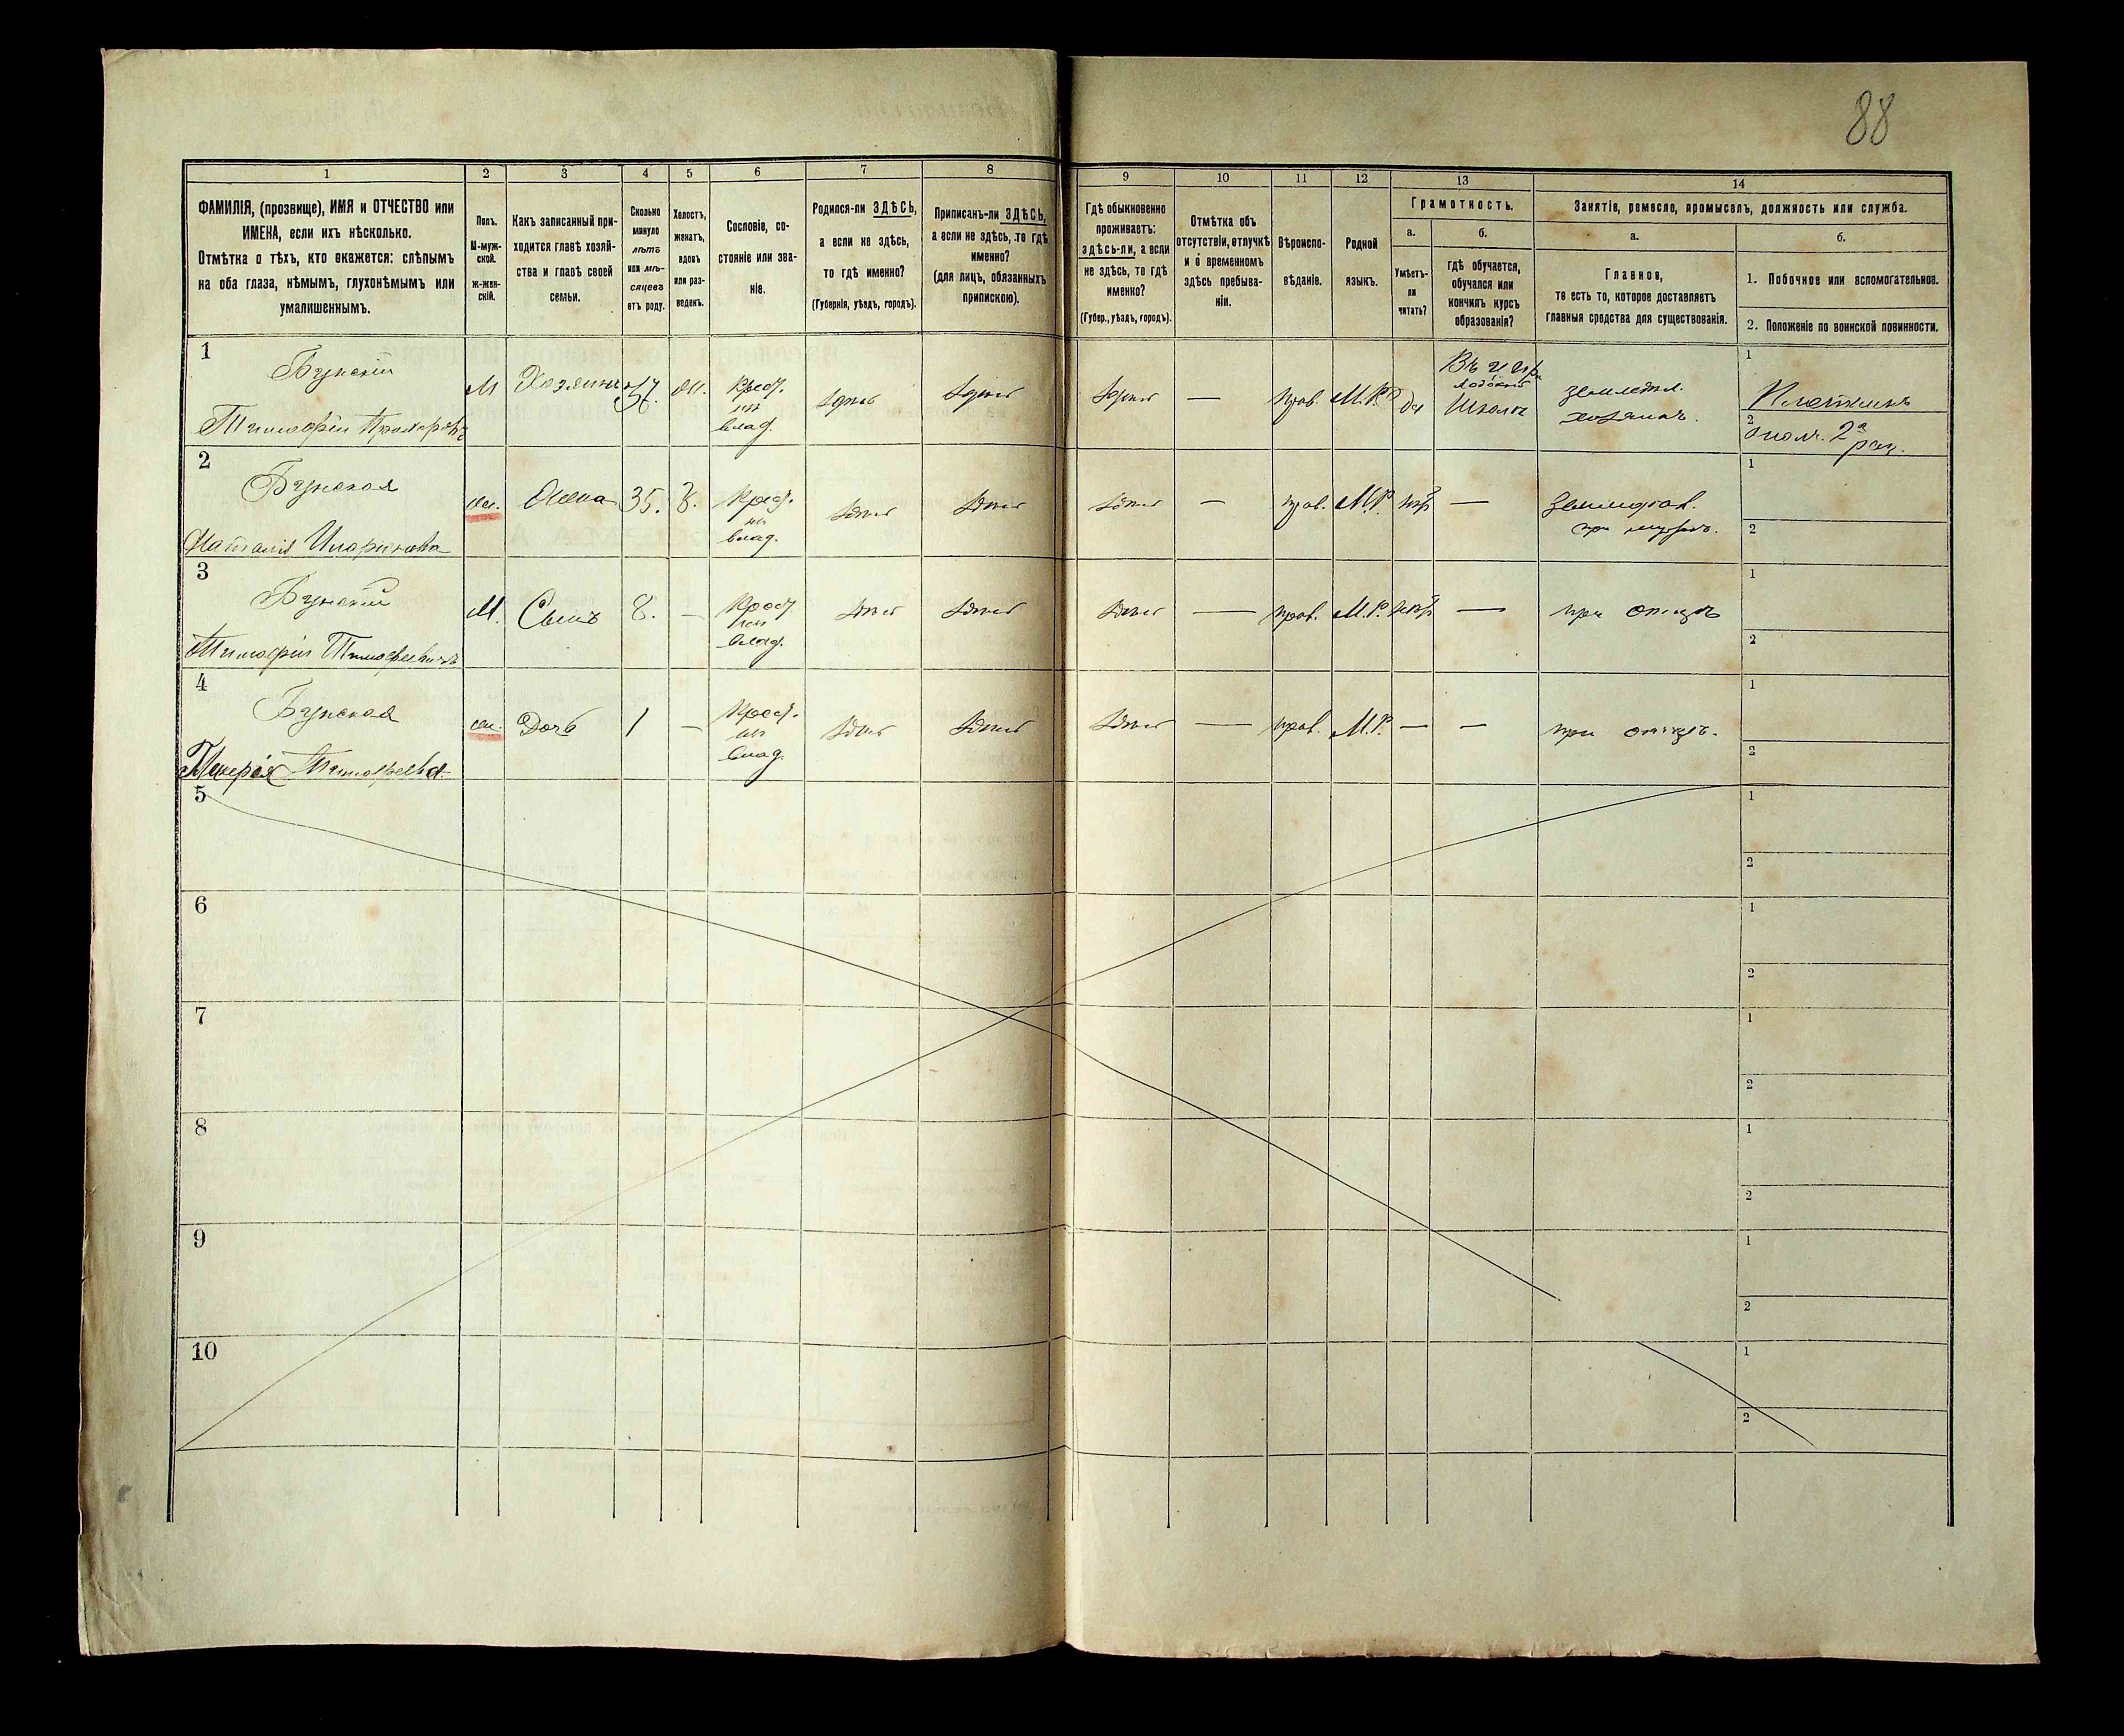 88
1 2 3 4 5 6 7 8 9 10 11 12 13 14
ФАМИЛІЯ, (прозвище), ИМЯ и ОТЧЕСТВО или
ИМЕНА, если ихъ нѣсколько.
Отмѣтка о тѣхъ, кто окажется: слѣпымъ
на оба глаза, нѣмымъ, глухонѣмымъ или
умалишеннымъ.
Полъ.
М-муж-
ской.
Ж-жен-
скій.
Какъ записанный при-
ходится главѣ хозяй-
ства и главѣ своей
семьи.
Сколько
минуло
лѣтъ
или мѣ-
сяцевъ
отъ роду.
Холостъ,
женатъ,
вдовъ
или раз-
веденъ.
Сословіе, со-
стояніе или зва-
ніе.
Родился-ли ЗДѢСЬ,
а если не здѣсь,
то гдѣ именно?
(Губернія, уѣздъ, городъ).
Приписанъ-ли ЗДѢСЬ,
а если не здѣсь, то гдѣ
именно?
(для лицъ, обязанныхъ
припискою).
Гдѣ обыкновенно
проживаетъ:
здѣсь-ли, а если
не здѣсь, то гдѣ
именно?
(Губер., уѣздъ, городъ).
Отмѣтка объ
отсутствіи, отлучкѣ
и о временномъ
здѣсь пребыва-
ніи.
Вѣроиспо-
вѣданіе.
Родной
языкъ.
Грамотность.
а.
Умѣетъ-
ли
читать?
б.
гдѣ обучается,
обучался или
кончилъ курсъ
образованія?
Занятіе, ремесло, промыселъ, должность или служба.
а.
Главное,
то есть то, которое доставляетъ
главныя средства для существованія.
б.
1. Побочное или вспомогательное.
2. Положеніе по воинской повинности.
1
Тимофѣй
М Хозяинъ 37.
Крест.
из
влад.
здѣсь здѣсь здѣсь — прав. М.Р. да
Школѣ
земледѣл.
хозяинъ.
1
Плотникъ
2
ополч. 2а раз.
2
Наталія
жен. Жена 35. З.
Крест.
из
влад.
здѣсь здѣсь здѣсь — прав. М.Р. нѣт —
при мужѣ.
1
2
3
Тимофѣй Тимофѣевичъ
М. Сынъ 8. —
Крест.
из
влад.
здѣсь здѣсь здѣсь — прав. М.Р. нѣт — при отцѣ
1
2
4
Гликерія Тимофѣевна
жен. Дочь 1 —
Крест.
из
влад.
здѣсь здѣсь здѣсь — прав. М.Р. — — при отцѣ.
1
2
5
1
2
6
1
2
7
1
2
8
1
2
9
1
2
10
1
2